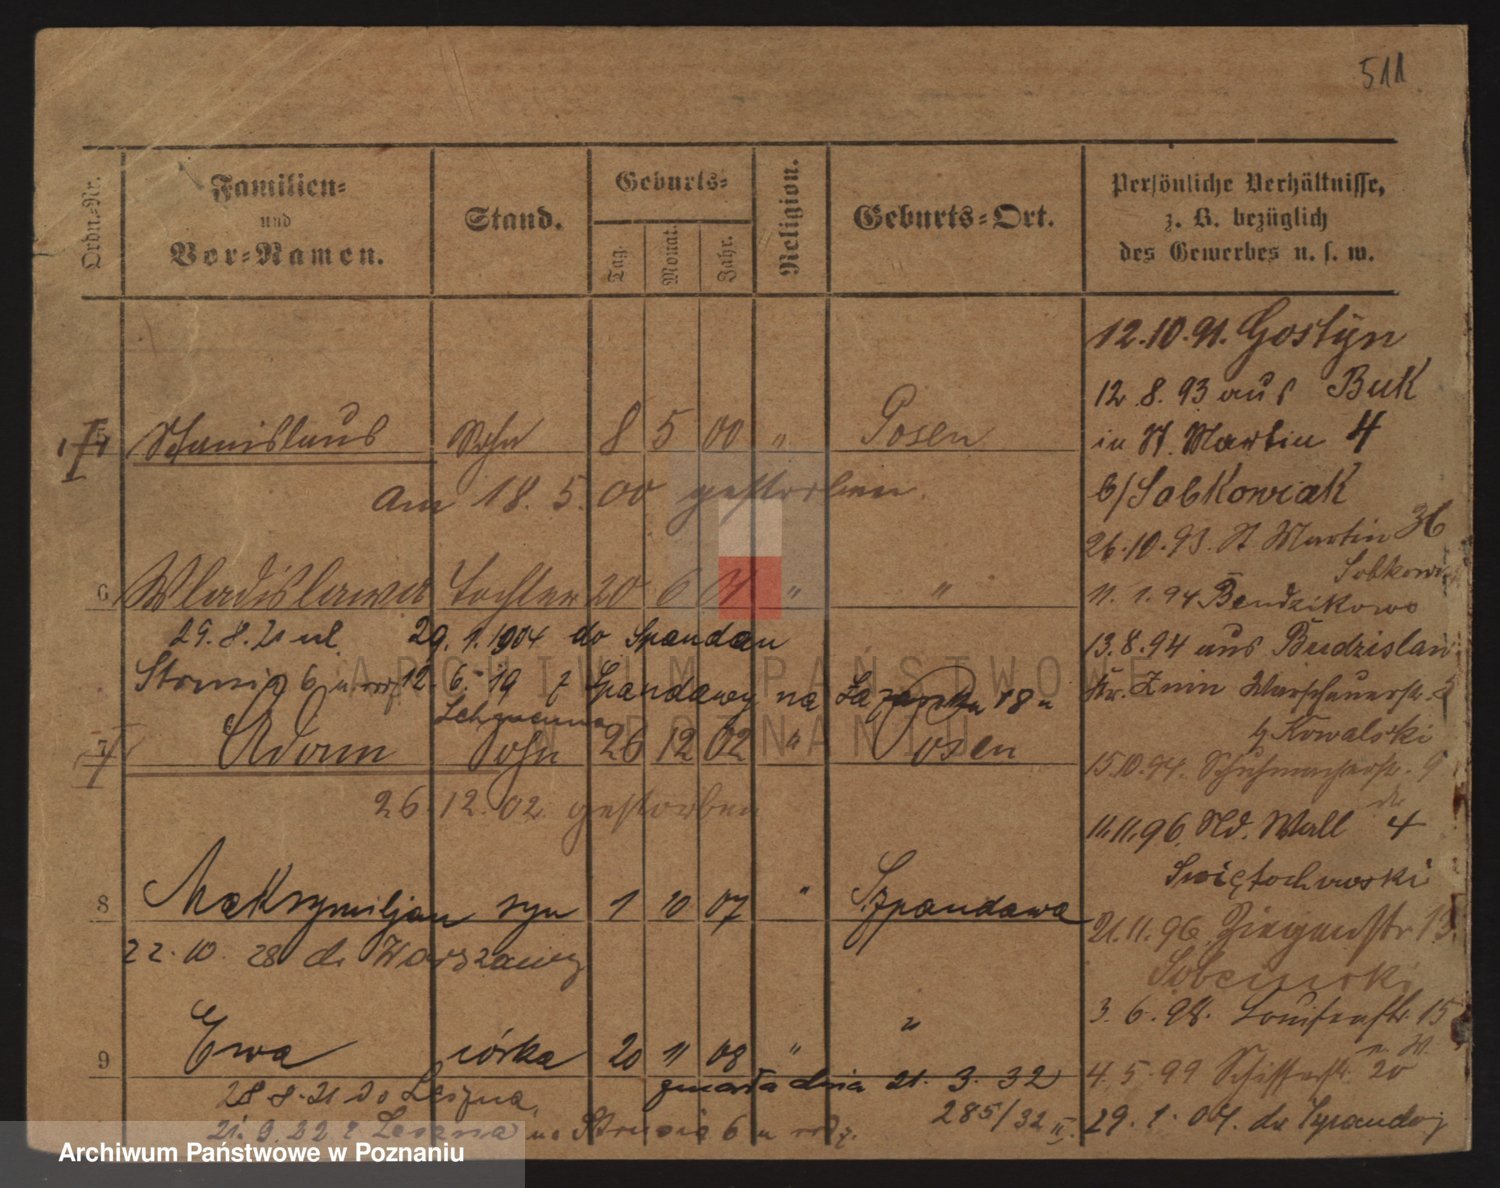 511
Ordn.-Nr.
Familien-
und
Vor-Namen.
Stand.
Geburts-
Tag.
Monat.
Jahr.
Religion.
Geburts-Ort.
Persönliche Verhältnisse,
z. B. bezüglich
des Gewerbes u. s. w.
5 Stanislaus Sohn 8 5 00 " Posen
am 18. 5. 00 gestorben.
6 Wladislawa Tochter 20 6 01 " "
29. 8. 21 ul. 29. 1. 1904 do Spandau
Strusia 6 u 12. 6. 19 z Spandawy na 18 u
7 Adam Sohn 26 12 02 " Posen
26. 12. 02 gestorben
8 Maksymiljan syn 1 10 07 " Szpandawa
22. 10. 28 do Warszawy
9 Ewa córka 20 11 08 " "
zmarła dnia 21. 3. 32
28 8. 21 do Leszna,
285/32 II.
21. 9. 22 z Leszna na Strusia 6 u
12. 10. 91. Gostyn
12. 8. 93 aus Buk
in St. Martin 4
b/Sobkowiak
26. 10. 93. St Martin 36
Sobkowiak
11. 1. 94 Bendzikowo
13. 8. 94 aus Budzislaw
Kr. Znin Warschauerstr.
b Kowalski
15. 10. 94. Schuhmacherstr. 9
11. 11. 96. Nd. Wall 4
Swiętochowski
21. 11. 96. Ziegenstr 13
3. 6. 98. Louisenstr. 15
4. 5. 99 Schifferstr. 20
29. 1. 04. do Szpandawy
ARCHIWUM PAŃSTWOWE
W POZNANIU
Archiwum Państwowe w Poznaniu